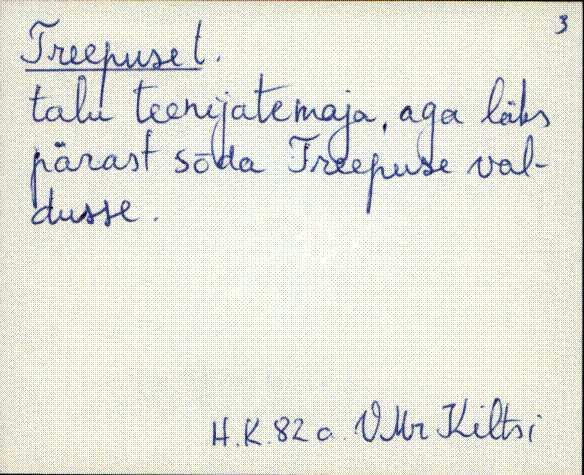 3
Treepuse t.
talu teenijatemaja, aga läks
pärast sõda Treepuse val-
dusse.
H.K. 82 a. VMr Kiltsi